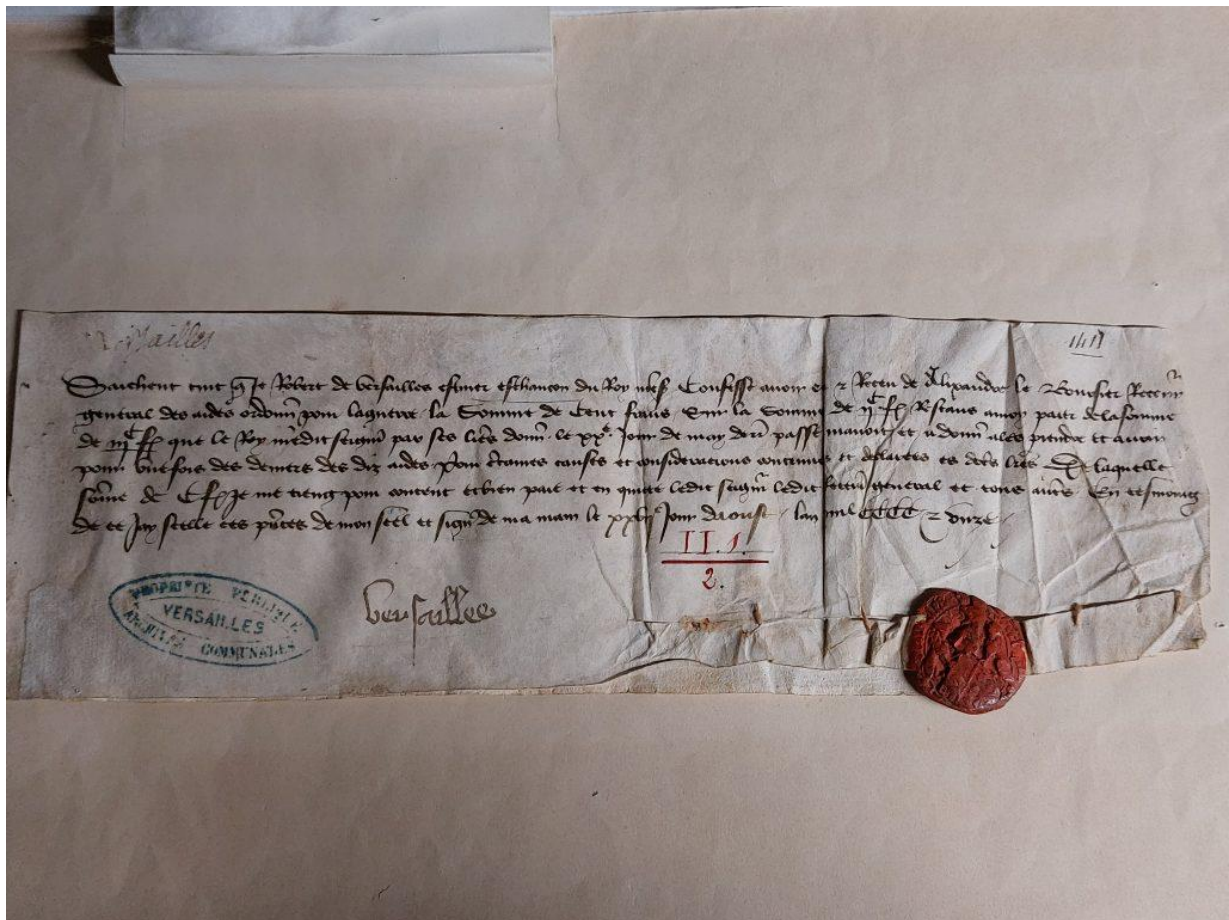 Versailles
1411
Saichent tuit q̄ Je Robert de Versailles escuier eschancon du Roy nr̄es Confesse avoir eu 2 Receu de Alixandre le Boursier Receveur
general des aides ordonn̄ pour la guerre la Somme de Cent frans Sur la Somme de frans Restans a moy paier de la somme
de que le Roy mondit seign̄ par ses lr̄es donn̄ le xxe Jour de may derr̄ passe mavoit et a donn̄ a les prendre et avoir
pour une fois des deniers des diz aides Pour certaines causes et consideracions contenues et declarees es dctes lr̄es De laquelle
som̄e de C fr. Je me tieng pour content et bien paie et en quitte ledit seign̄ ledit Receveur general et tous autres En tesmoing
de ce Jay scelle ces pn̄tes de mon scel et sign̄ de ma main le Jour daoust lan mil CCCC 2 onze
II.1.
2.
Versailles
PROPRIÉTÉ PUBLIQUE
VERSAILLES
ARCHIVES COMMUNALES